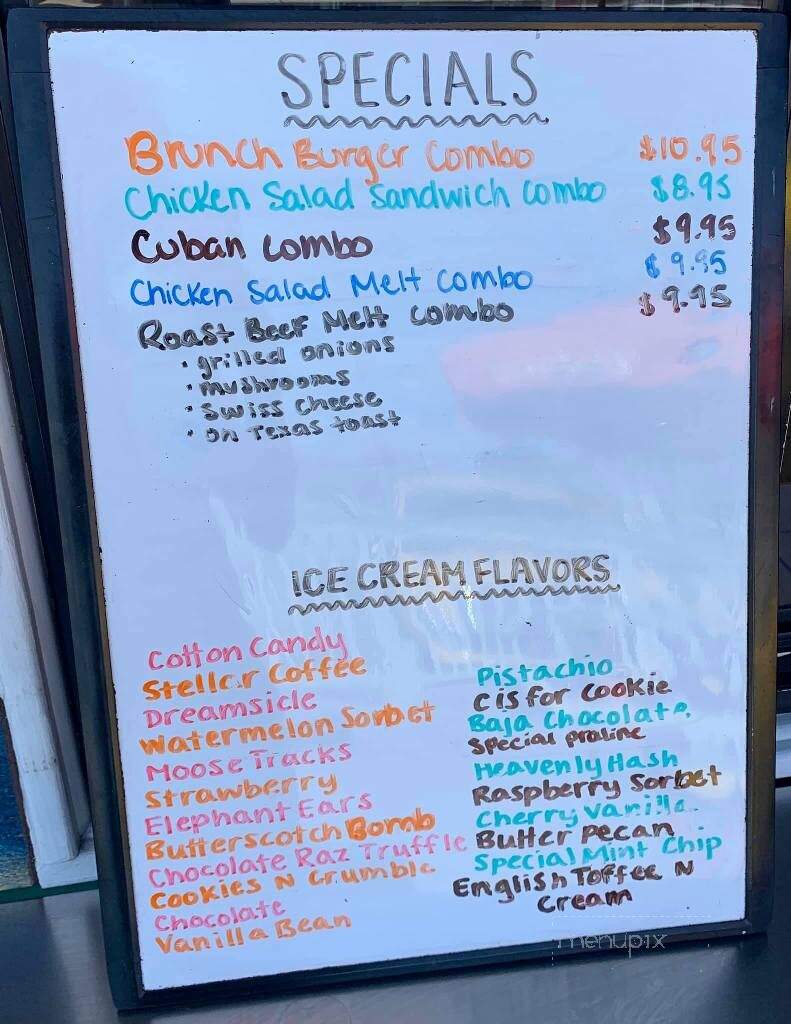 SPECIALS
Brunch Burger Combo $10.95
Chicken Salad Sandwich Combo $8.95
Cuban Combo $9.95
Chicken Salad Melt Combo $9.95
Roast Beef Melt Combo $9.95
• grilled onions
• mushrooms
• Swiss cheese
• on Texas toast
ICE CREAM FLAVORS
Cotton Candy
Stellar Coffee
Dreamsicle
Watermelon Sorbet
Moose Tracks
Strawberry
Elephant Ears
Butterscotch Bomb
Chocolate Raz Truffle
Cookies N Crumble
Chocolate
Vanilla Bean
Pistachio
C is for Cookie
Baja Chocolate
Special praline
Heavenly Hash
Raspberry Sorbet
Cherry Vanilla
Butter Pecan
Special Mint Chip
English Toffee N
Cream
menupix